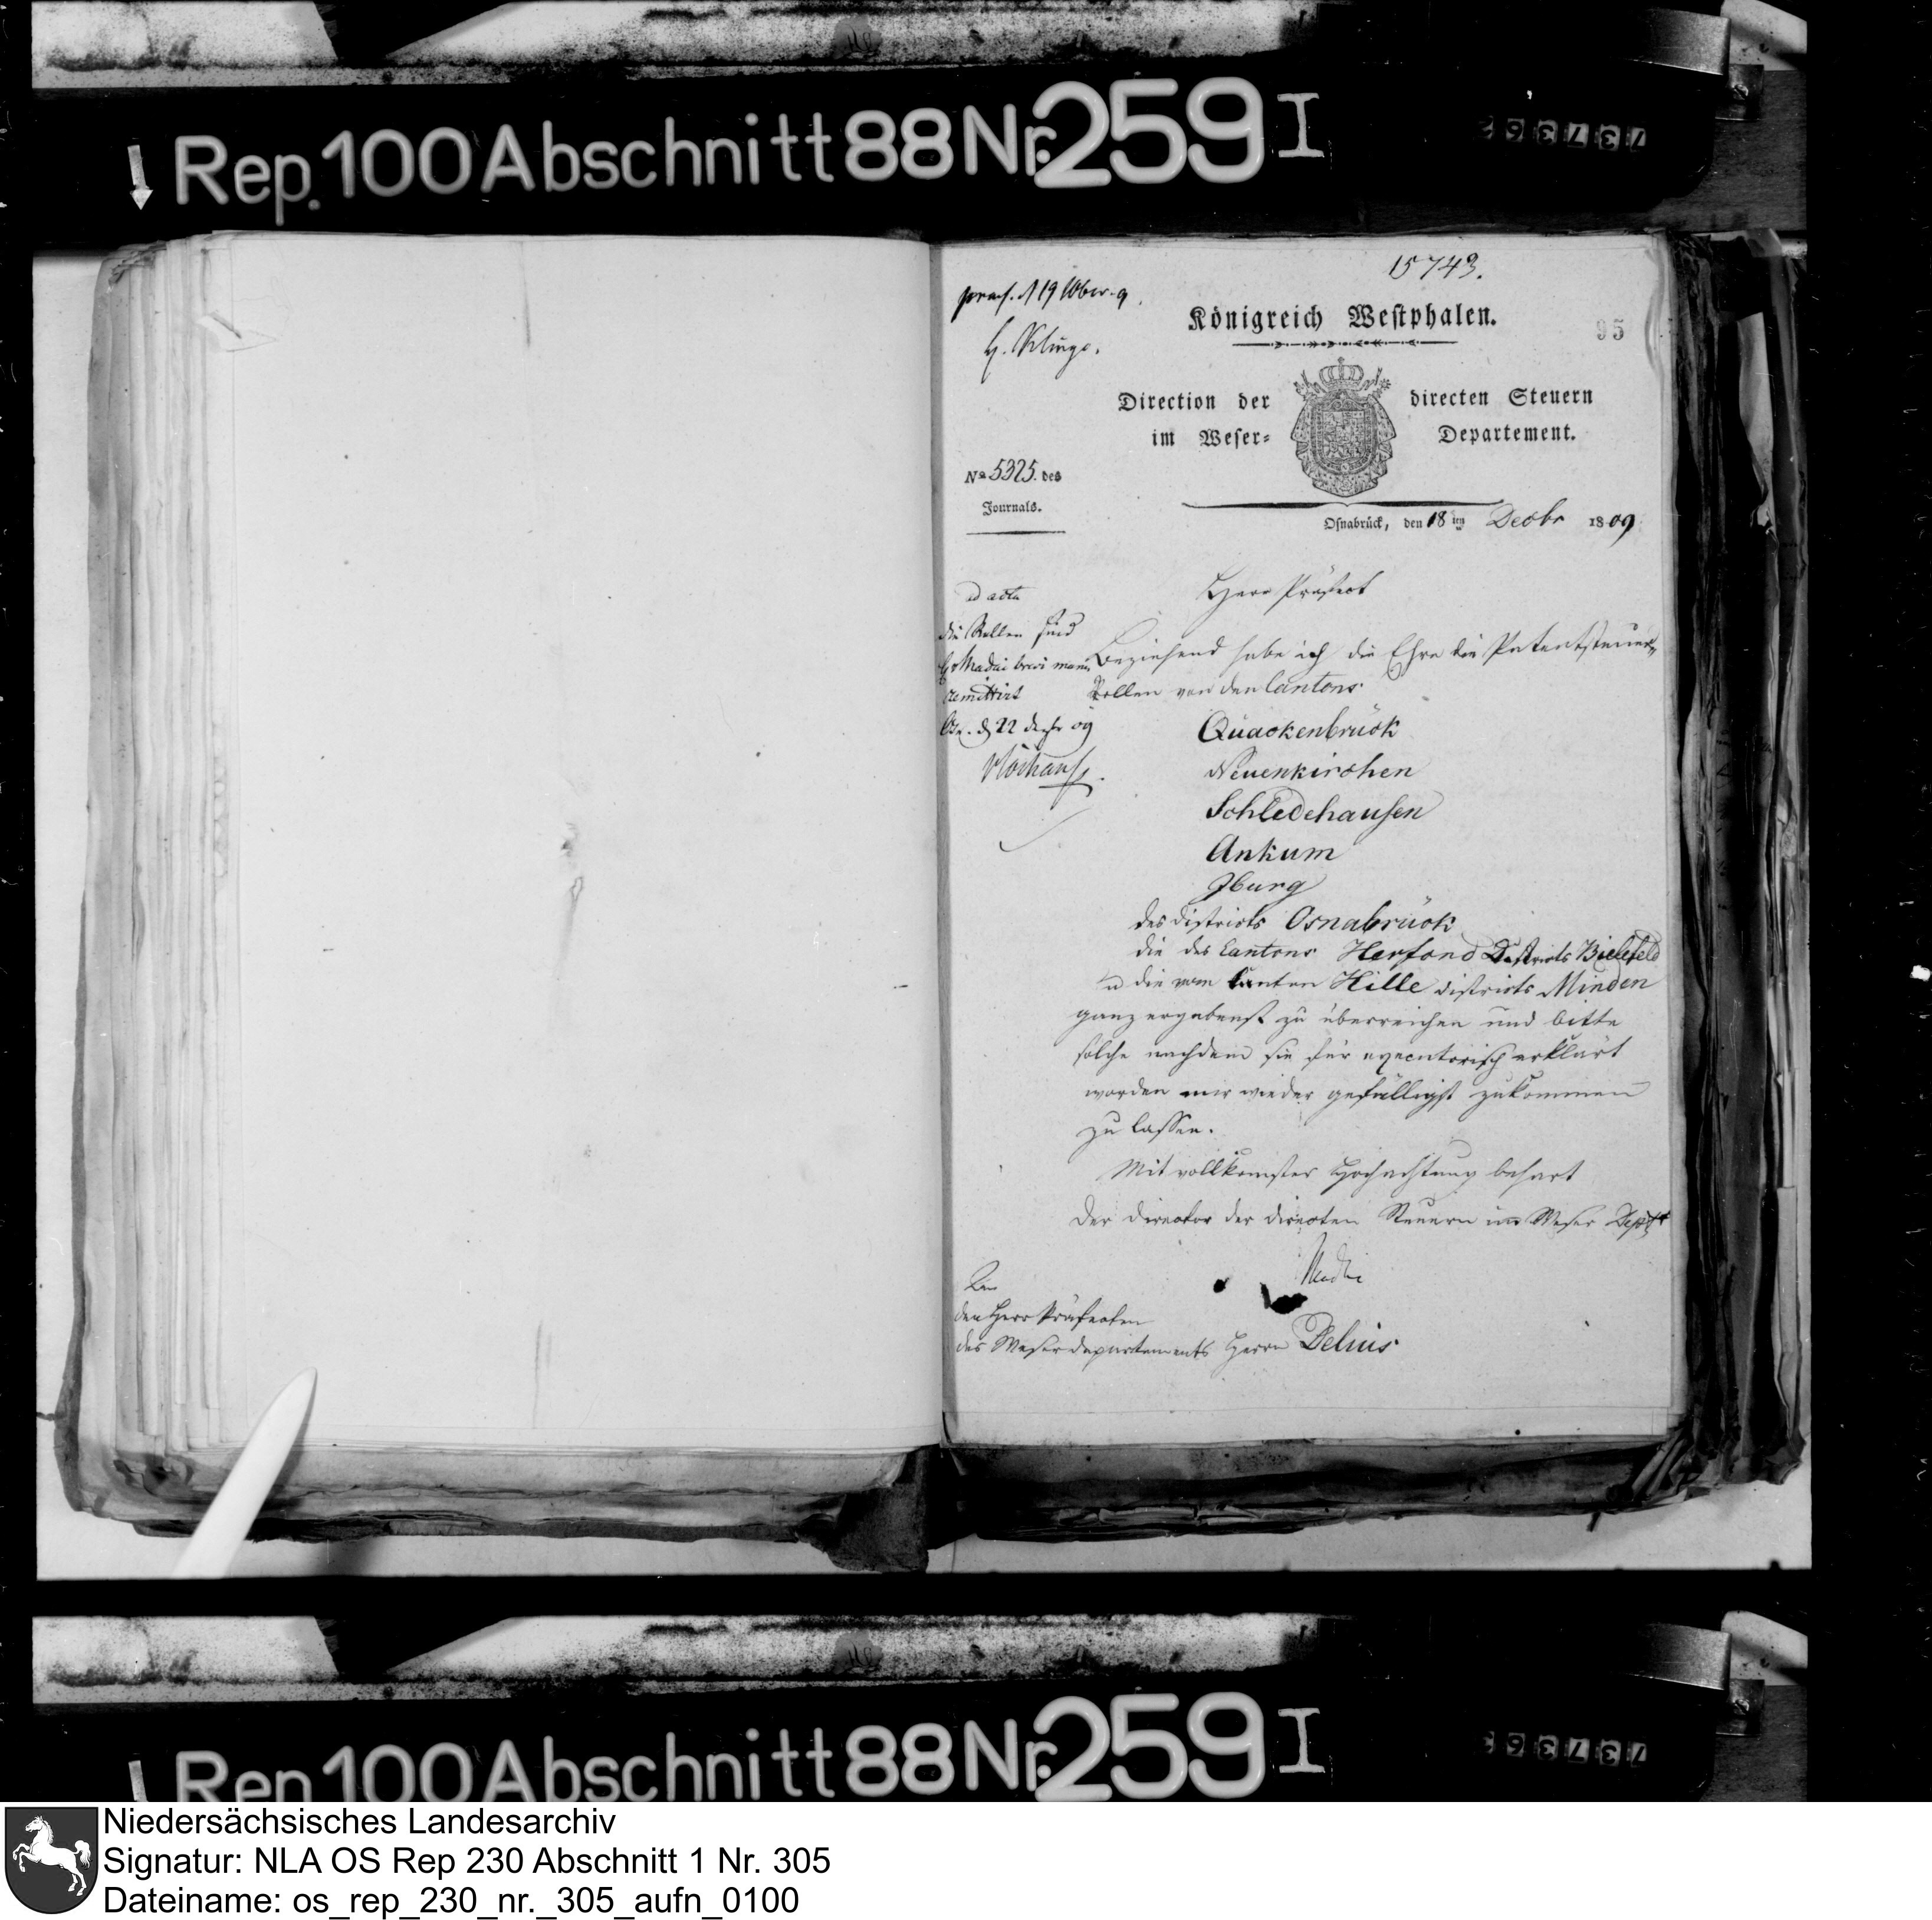 Rep. 100 Abschnitt 88 Nr. 259 I
15743.
praes. d 19 Xber. 9.
H. Kluge.
Königreich Westphalen.
95
Direction der directen Steuern
im Weser- Departement.
No 5325. des
Journals.
Osnabrück, den 18 ten Decbr 1809
ad acta
die Rollen sind
H v Madai brevi manu
remittirt
Osn. d 22 Decbr 09
Herr Präfect
Beziehend habe ich die Ehre die Patentsteuer-
Rollen von den Cantons
Quackenbrück
Neuenkirchen
Schledehausen
Ankum
Iburg
des Districts Osnabrück
die des Cantons Herford Districts Bielefeld
u die vom Canton Hille Districts Minden
ganz ergebenst zu überreichen und bitte
solche nachdem sie für executorisch erklärt
worden mir wieder gefälligst zukommen
zu lassen.
Mit vollkomster Hochachtung behart
Der Director der directen Steuern im Weser Dept
Madai
An
den Herr Präfecten
des Weserdepartements Herrn Delius
Rep 100 Abschnitt 88 Nr. 259 I
Niedersächsisches Landesarchiv
Signatur: NLA OS Rep 230 Abschnitt 1 Nr. 305
Dateiname: os_rep_230_nr._305_aufn_0100